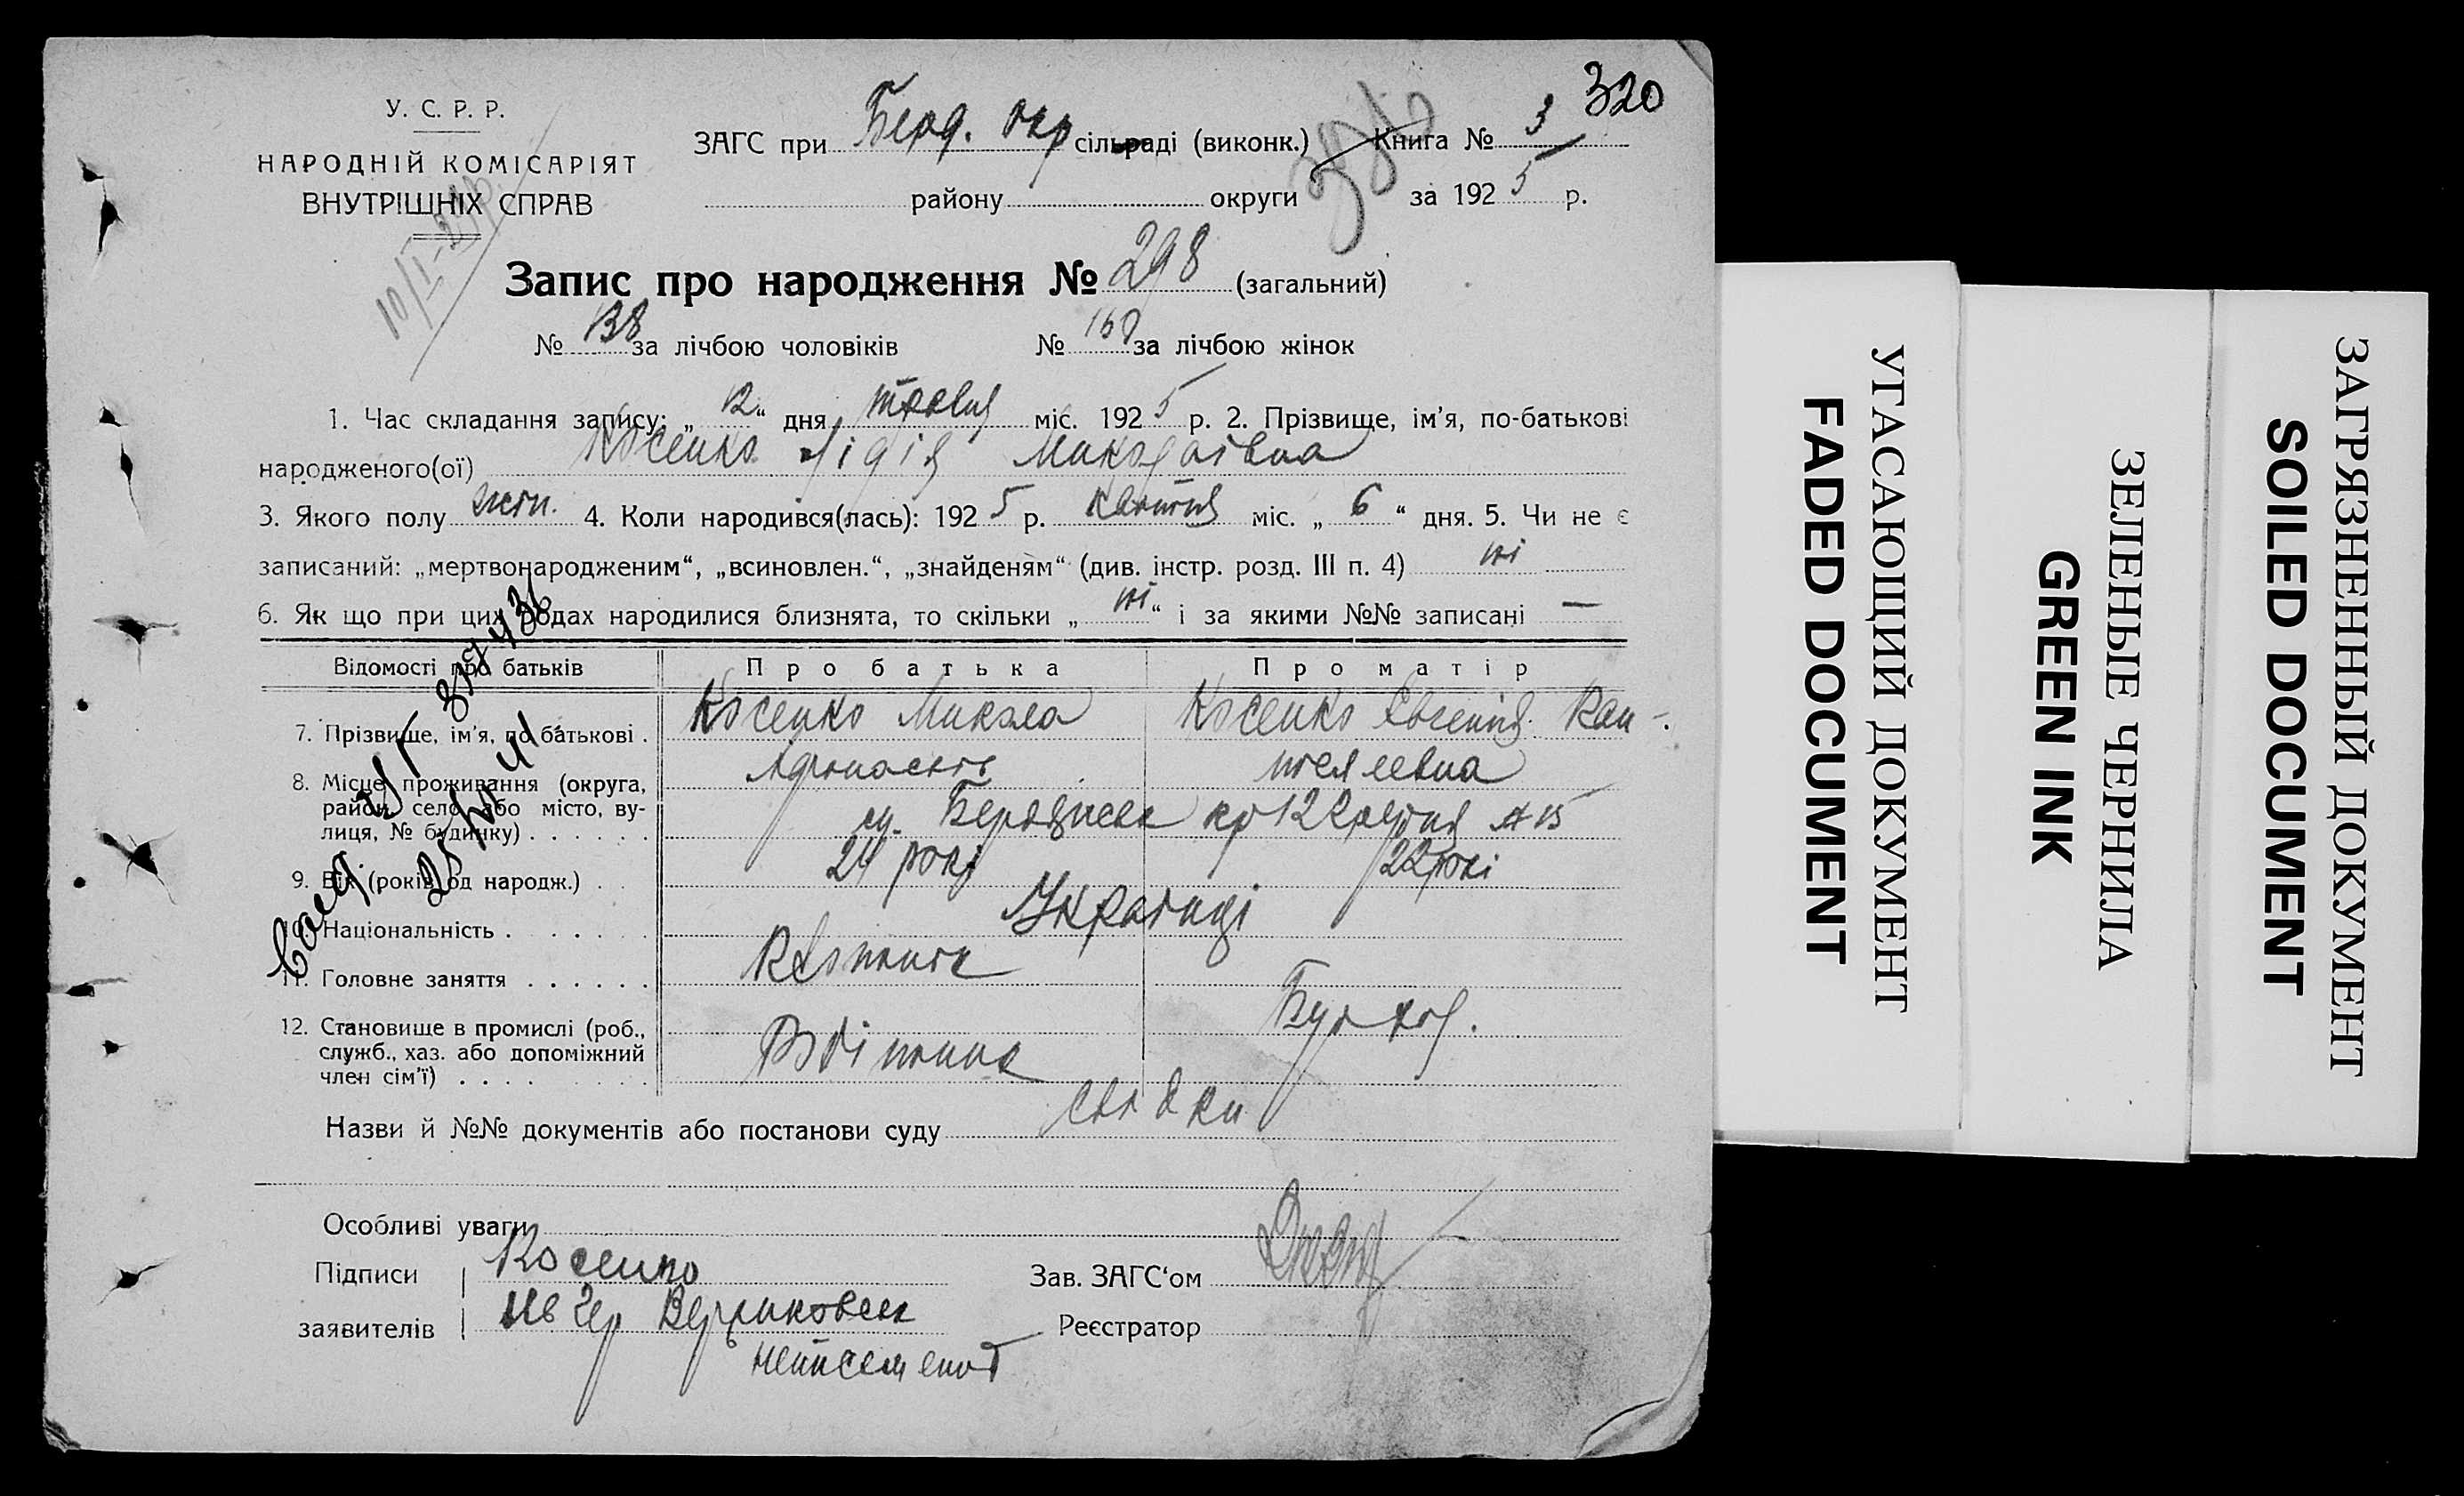 320
У. С. Р. Р.
НАРОДНІЙ КОМІСАРІЯТ
ВНУТРІШНІХ СПРАВ
ЗАГС при Берд. окр сільраді (виконк.) Книга № 3
району округи за 192 5 р.
Запис про народження № 298 (загальний)
№ 138 за лічбою чоловіків № 160 за лічбою жінок
1. Час складання запису: „ 12 “ дня травня міс. 192 5 р. 2. Прізвище, ім'я, по-батькові
народженого(ої) Косенко Лідія Миколаівна
3. Якого полу жін. 4. Коли народився(лась): 192 5 р. квітня міс. „ 6 “ дня. 5. Чи не є
записаний: „мертвонародженим“, „всиновлен.“, „знайденям“ (див. інстр. розд. III п. 4) ні
6. Як що при цих родах народилися близнята, то скільки „ ні “ і за якими №№ записані —
Відомості про батьків Про батька Про матір
7. Прізвище, ім'я, по батькові . Косенко Микола Косенко Євгенія Кан-
8. Місце проживання (округа, район, село, або місто, вулиця, № будинку) . . . . . .
м. Бердянськ
9. Вік (років од народж.) . . 24 рокі 22 рокі
10. Національність . . . . . . Українці
11. Головне заняття . . . . . .
12. Становище в промислі (роб., служб., хаз. або допоміжний член сім'ї) . . . .
Назви й №№ документів або постанови суду
Особливі уваги
Підписи Косенко Зав. ЗАГС‘ом
заявителів Реєстратор
УГАСАЮЩИЙ ДОКУМЕНТ
FADED DOCUMENT
ЗЕЛЕНЫЕ ЧЕРНИЛА
GREEN INK
ЗАГРЯЗНЕННЫЙ ДОКУМЕНТ
SOILED DOCUMENT